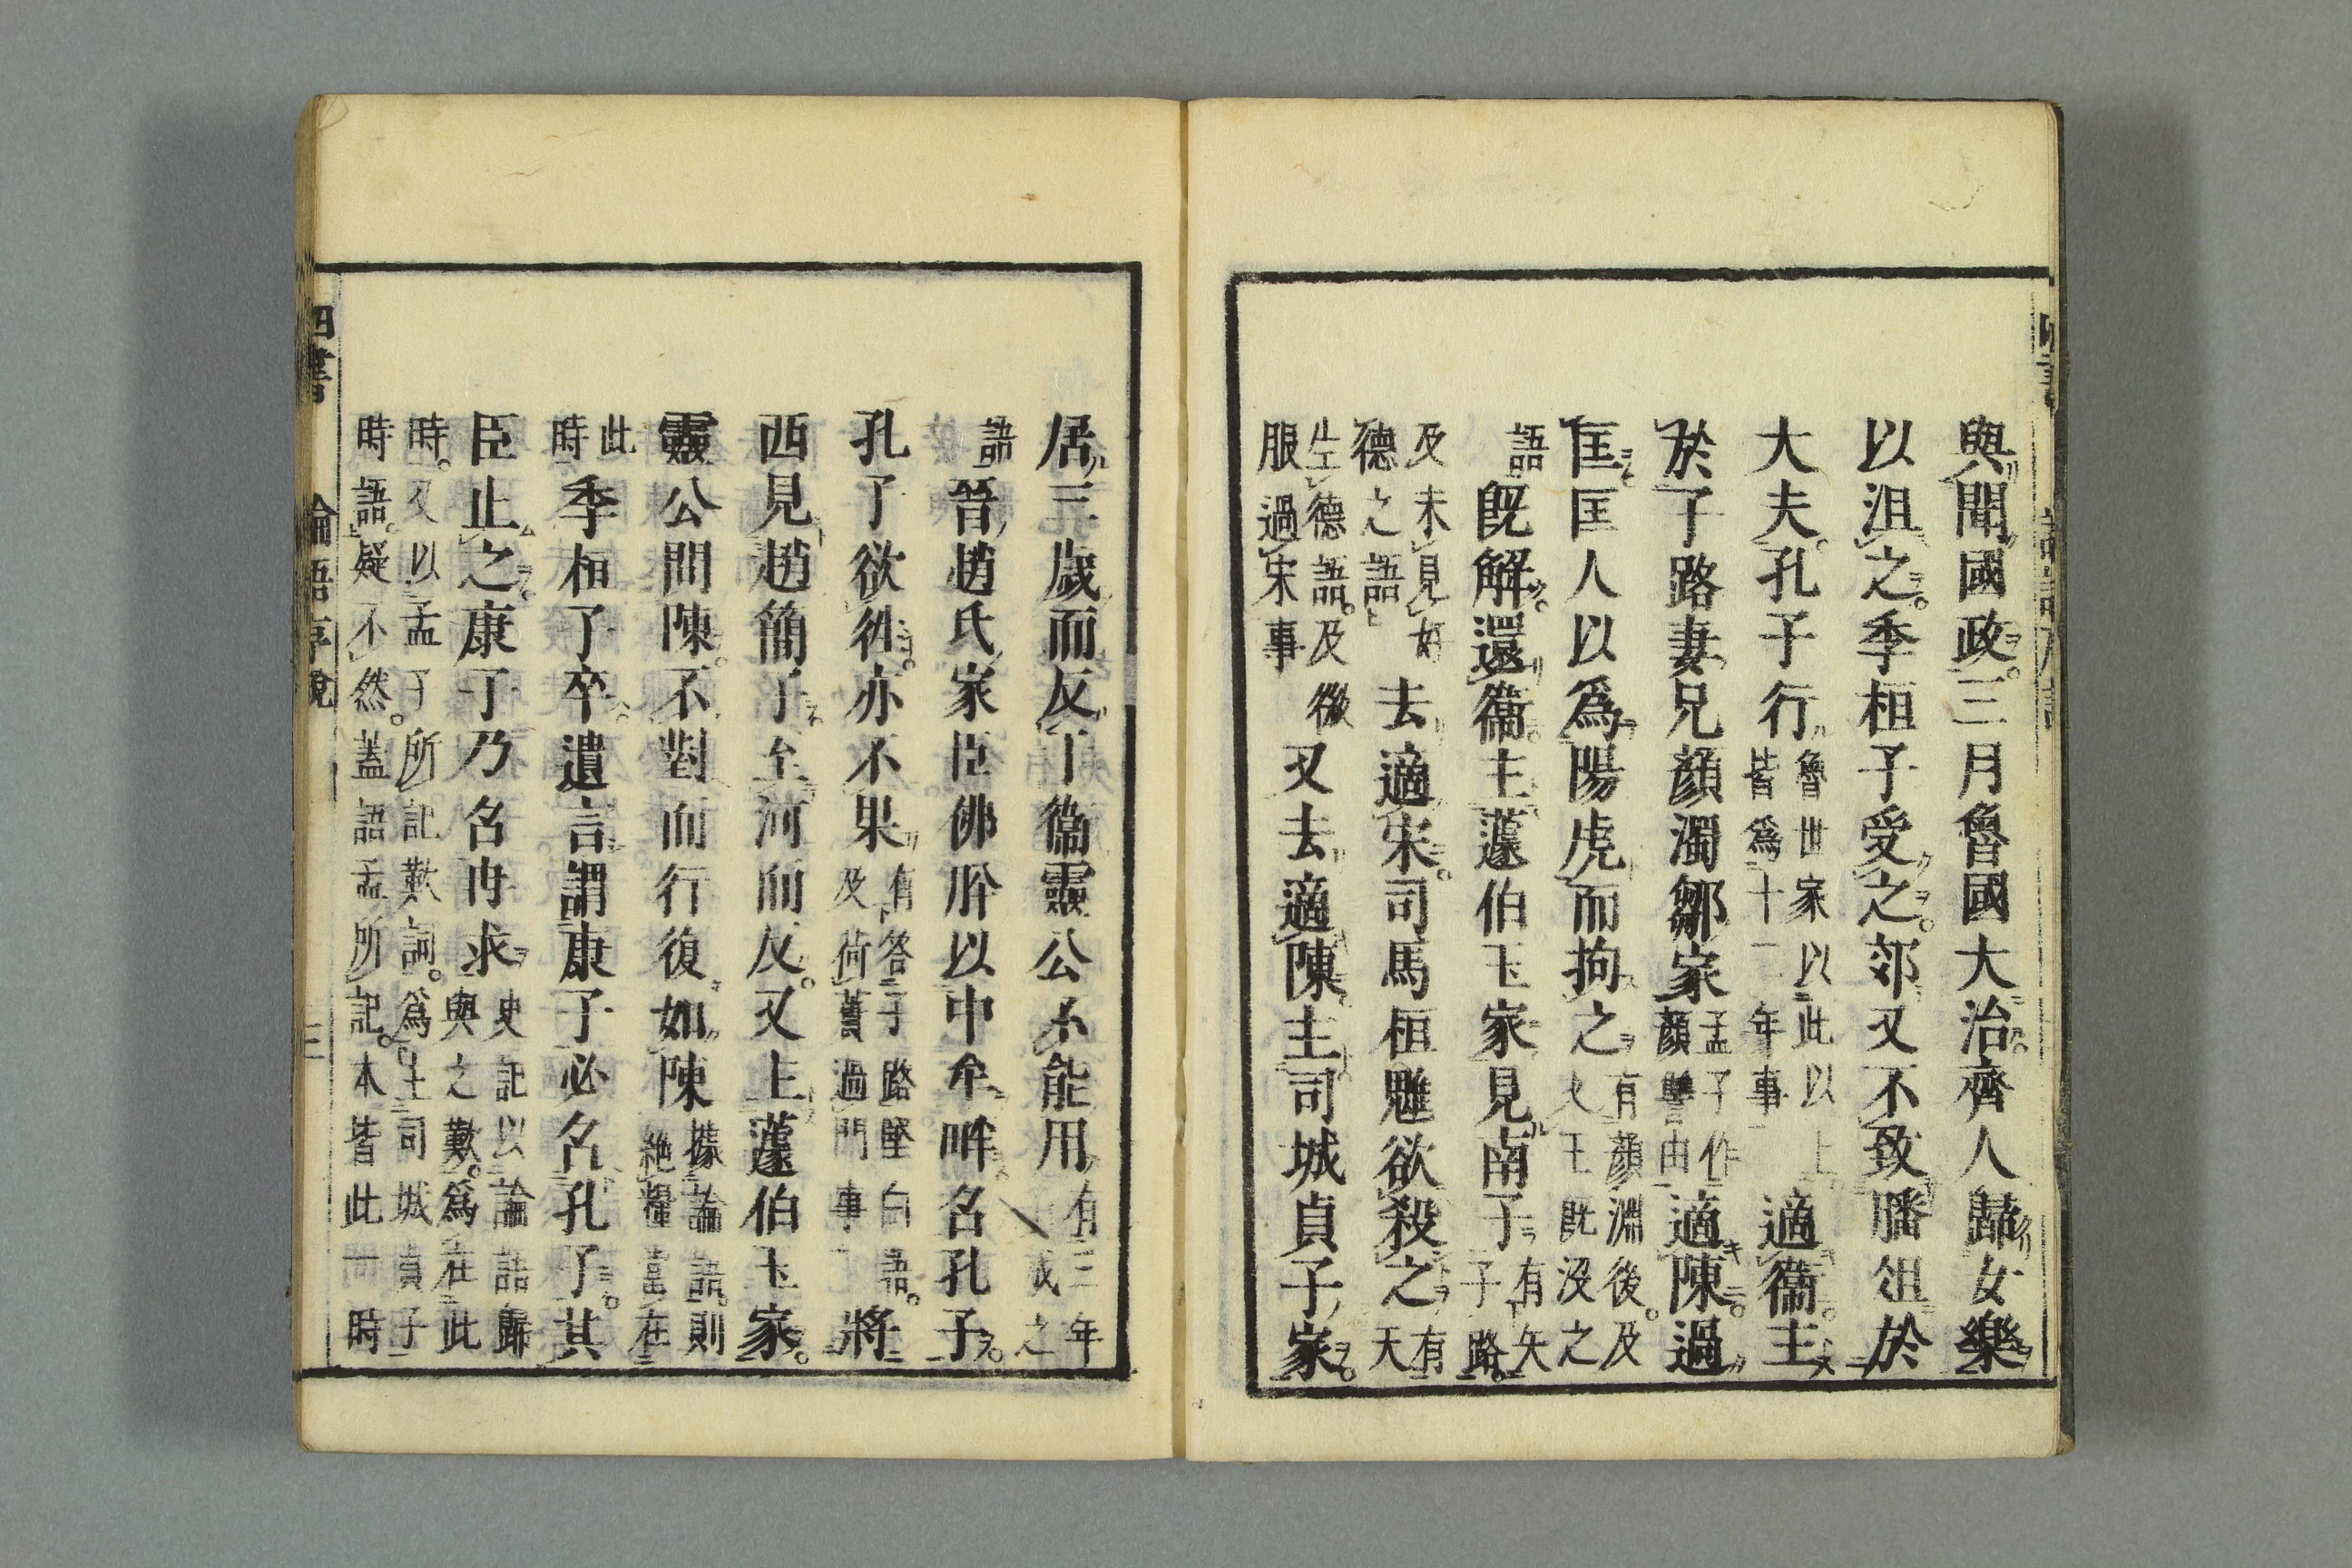 與聞國政。三月魯國大治。齊人歸女樂
以沮之。季桓子受之。郊又不致膰俎於
大夫。孔子行 魯世家以此以上皆爲十二年事 適衞。主
於子路妻兄顏濁鄒家 孟子作顏讐由 適陳。過
匡。匡人以爲陽虎而拘之 有顏淵後。及文王既沒之
語 既解。還衞。主蘧伯玉家見南子 有矢子路。
及未見好德之語 去適宋。司馬桓魋欲殺之 有天
生德語。及微服過宋事 又去適陳。主司城貞子家。
居三歲而反于衞靈公不能用 有三年有成之
語 晉趙氏家臣佛肸以中牟畔。召孔子。
孔子欲徃。亦不果 有答子路堅白語。及荷蕢過門事 將
西見趙簡子。至河而反。又主蘧伯玉家。
靈公問陳。不對而行。復如陳 據論語。則絶糧當在
此時 季桓子卒。遺言謂康子必召孔子。其
臣止之。康子乃召冉求 史記以論語歸與之歎。爲在此
時。又以孟子所記歎詞。爲主司城貞子
時語。疑不然。蓋語孟所記。本皆此一時
四書 論語序說 三